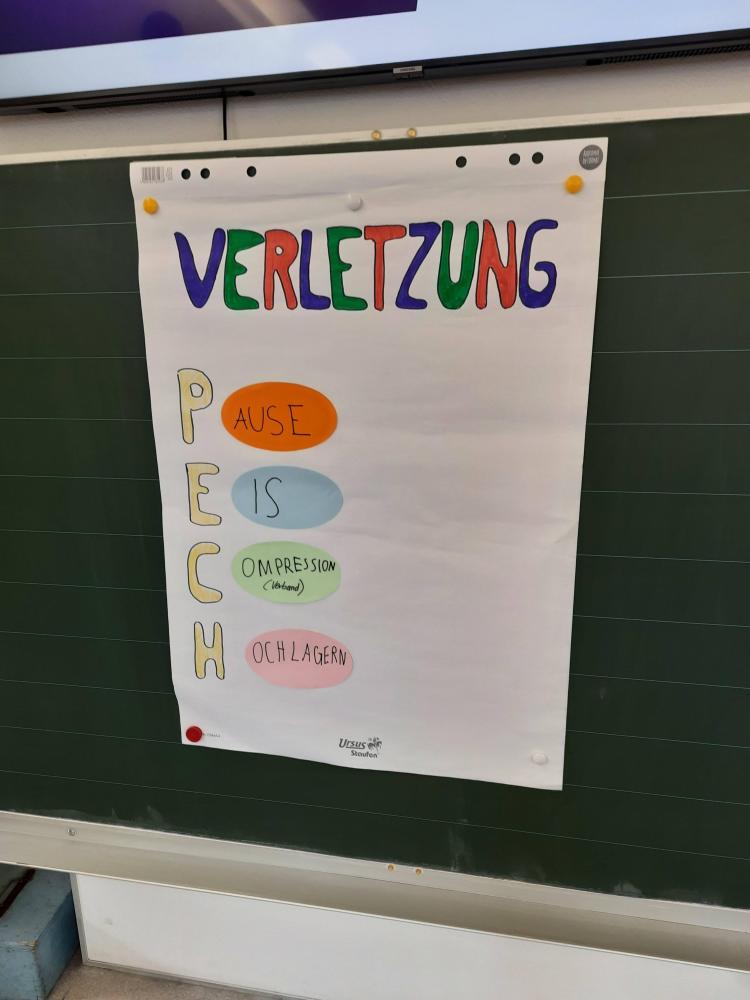 VERLETZUNG
PAUSE
EIS
COMPRESSION
(Verband)
HOCHLAGERN
Ursus
Staufen